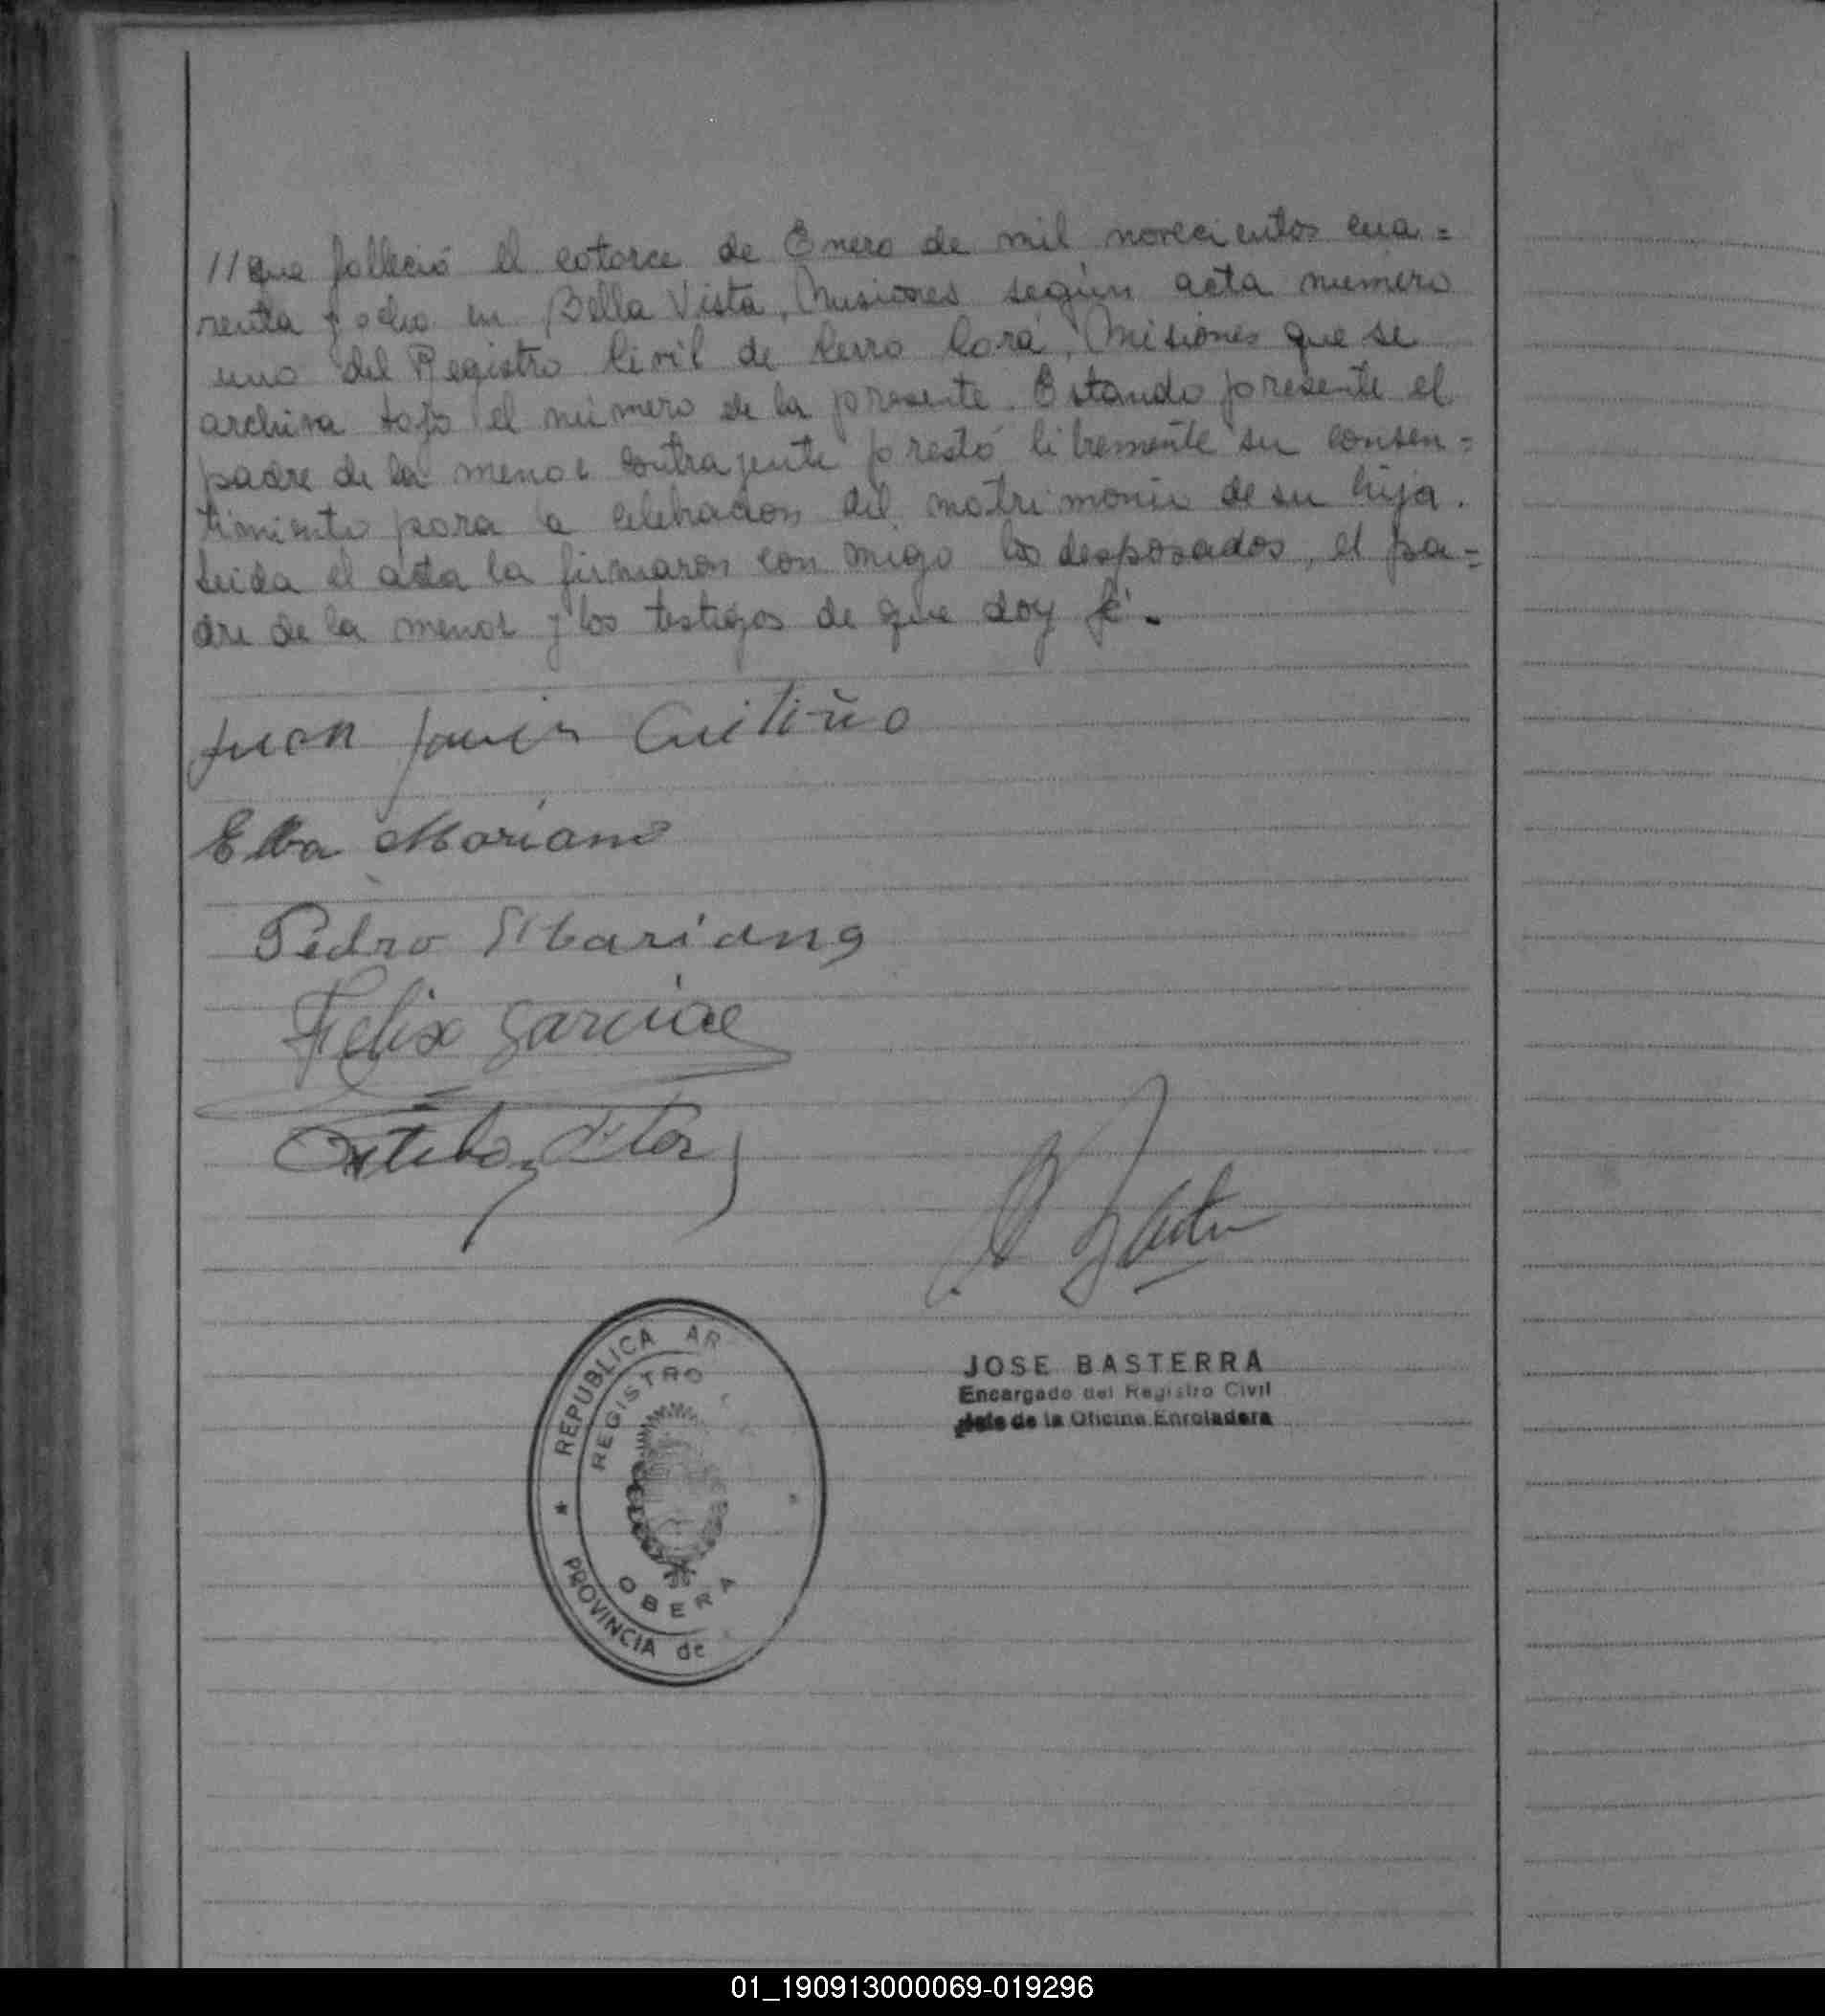 //que falleció el catorce de Enero de mil novecientos cua=
renta y ocho en Bella Vista, Misiones según acta número
uno del Registro Civil de Cerro Corá, Misiones que se
archiva bajo el número de la presente. Estando presente el
padre de la menor contrayente prestó libremente su consen=
timiento para la celebración del matrimonio de su hija.
Leida el acta la firmaron con migo los desposados, el pa=
dre de la menor y los testigos de que doy fé.-
Juan Cuitiño
Elba Mariano
Pedro Mariano
Felix Garcia
JOSE BASTERRA
Encargado del Registro Civil
Jefe de la Oficina Enroladora
REPUBLICA AR
REGISTRO
OBERA
PROVINCIA de
01_190913000069-019296